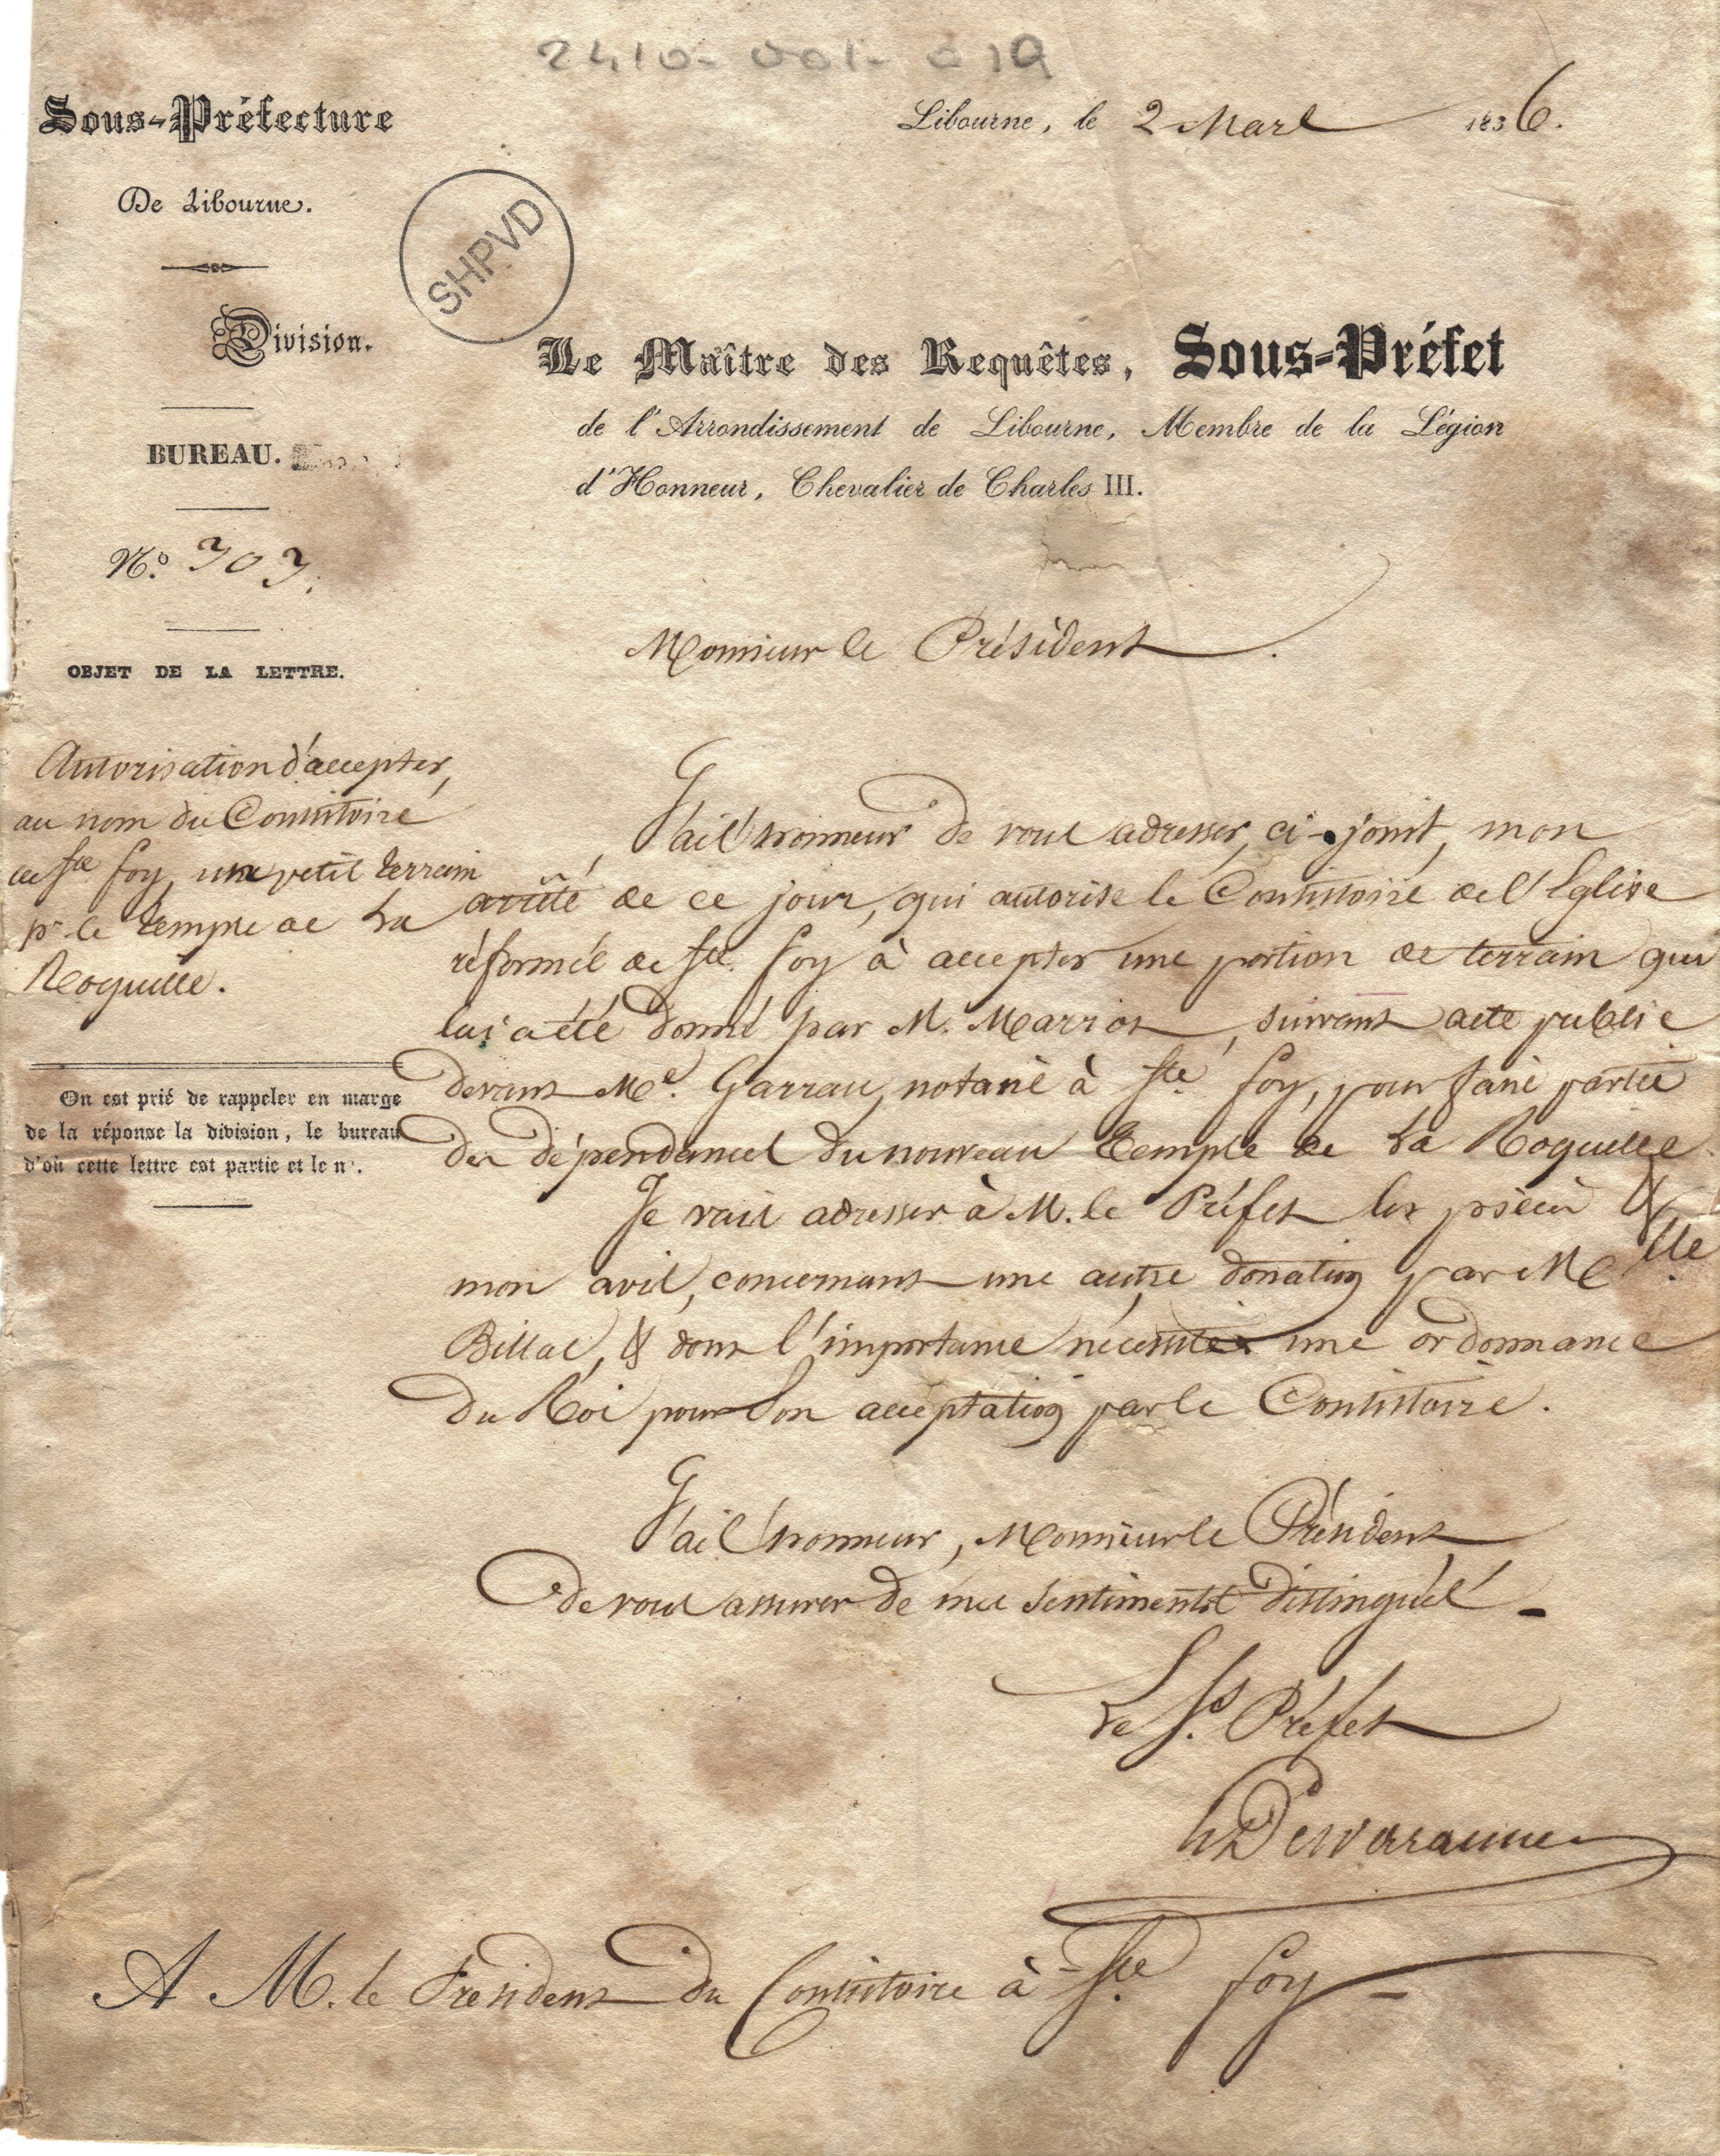 2410-001-019
Sous-Préfecture
De Libourne.
Libourne, le 2 Mars 1836.
SHPVD
Division.
BUREAU.
N.º 303.
Le Maître des Requêtes, Sous-Préfet
de l'Arrondissement de Libourne, Membre de la Légion
d'Honneur, Chevalier de Charles III.
OBJET DE LA LETTRE.
Autorisation d'accepter,
au nom du Consistoire
de Ste foy, un petit terrain
pr. le temple de La
Roquille.
On est prié de rappeler en marge
de la réponse la division, le bureau
d'où cette lettre est partie et le nº.
Monsieur le Président.
J'ai l'honneur de vous adresser, ci-joint, mon
arrêté de ce jour, qui autorise le Consistoire de l'Eglise
réformée de Ste. foy à accepter une portion de terrain qui
lui a été donné par M. , suivant acte public
devant Me. Garrau, notaire à Ste foy, pour faire partie
des dépendances du nouveau Temple de La Roquille.
Je vais adresser à M. le Préfet les pièces &
mon avis, concernant une autre donation par Melle
Billac, & dont l'importance nécessite une ordonnance
du Roi pour son acceptation par le Consistoire.
J'ai l'honneur, Monsieur le Président
de vous assurer de mes sentiments distingués.
Le Ss. Préfet
A M. le Président du Consistoire à Ste. foy